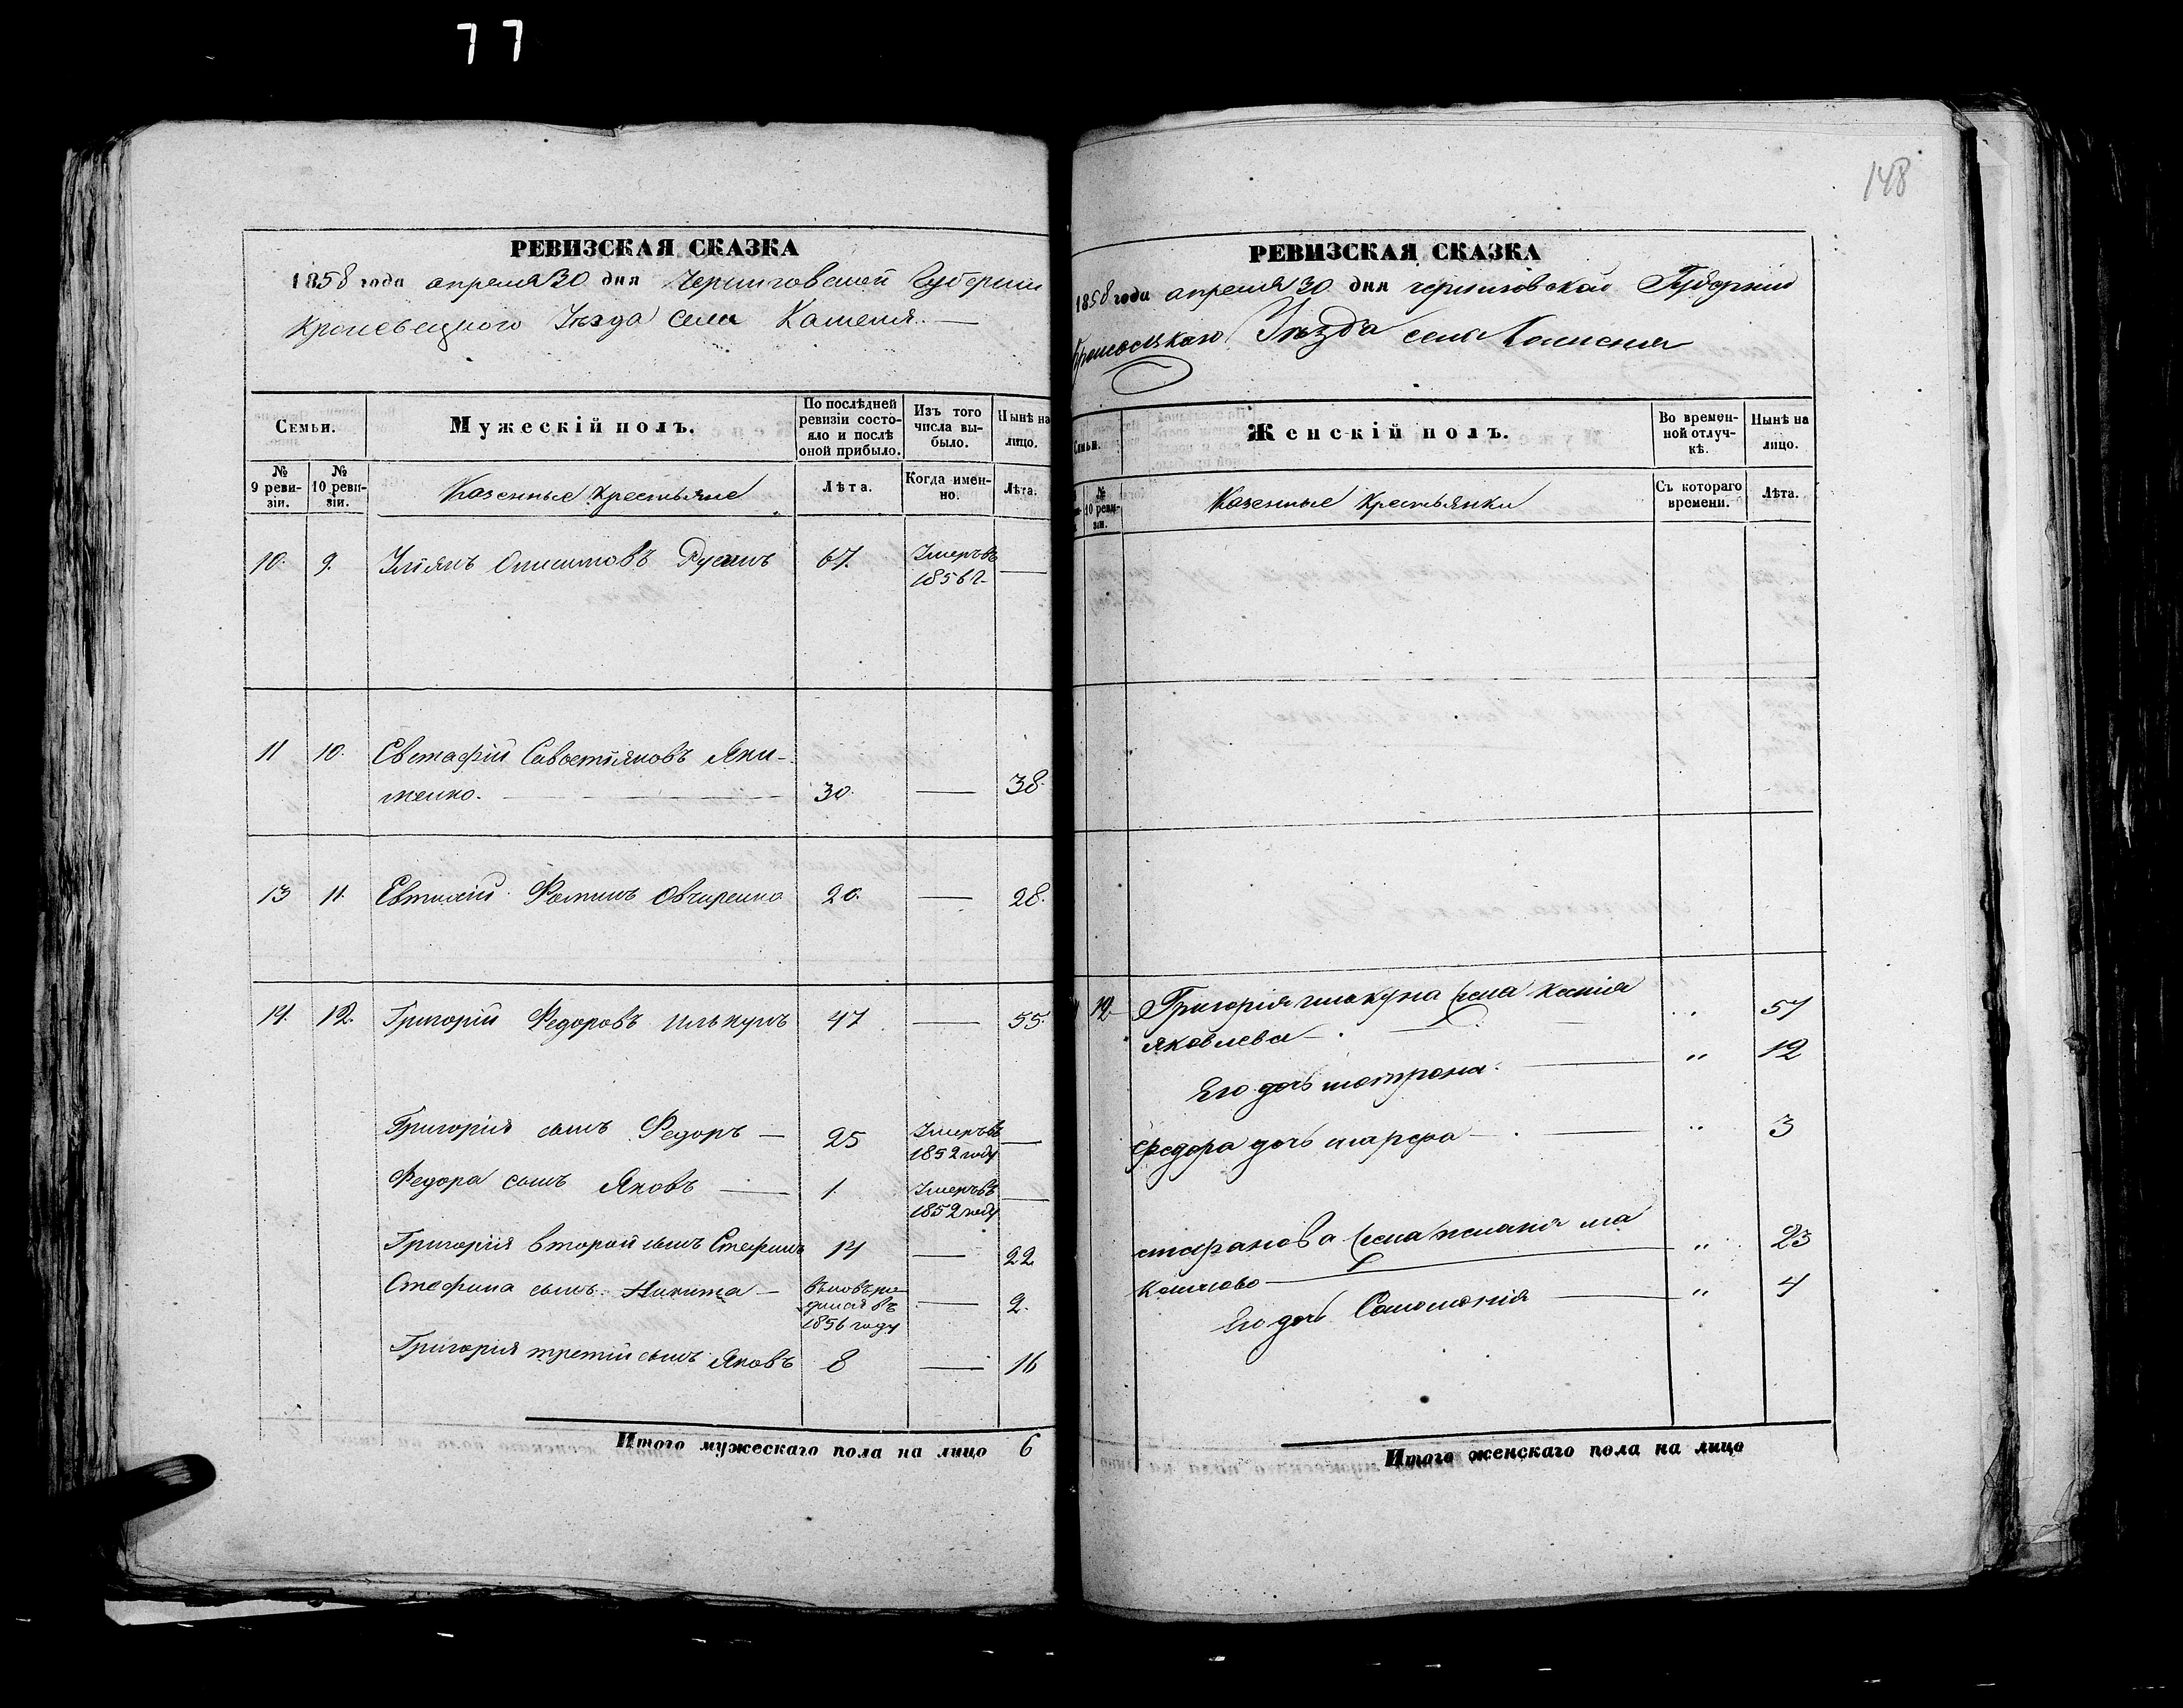 77
148
РЕВИЗСКАЯ СКАЗКА
1858 года апреля 30 дня Черниговской Губернии
Кролевецкого Уѣзда Села Каменя.
Семьи.
Мужескій полъ.
По послѣдней ревизіи состояло и послѣ оной прибыло.
Изъ того числа выбыло.
Нынѣ на лицо.
№ 9 ревизіи.
№ 10 ревизіи.
Казенные Крестьяне
Лѣта.
Когда именно.
Лѣта.
10. 9. Улiянъ Онисимовъ 67. Умеръ въ
1856 г. —
11 10. Евстафій Савостіяновъ Яки-
менко. — 30. — 38.
13 11. Евтихій Фотинъ Овчиренко 20. — 28.
14. 12. Григорій Федоровъ Шлыкунъ 47 — 55.
Григорія сынъ Федоръ — 25 Умеръ въ
1852 году —
Федора сынъ Яковъ — 1. Умеръ въ
1852 году —
Григорія второй сынъ Стефанъ 14 — 22
Стефана сынъ Никита — вновь ро-
дился въ
1856 году — 2.
Григорія третій сынъ Яковъ 8 — 16
Итого мужескаго пола на лицо 6
РЕВИЗСКАЯ СКАЗКА
1858 года апреля 30 дня черниговской Губернии
Кролевецкаго Уѣзда села Каменя
Семьи.
Женскій полъ.
Во временной отлучкѣ.
Нынѣ на лицо.
№ 10 ревизіи.
Казенные Крестьянки
Съ котораго времени.
Лѣта.
12 Григорія жена Ксенія
Яковлева — „ 57
Его дочь мотрона — „ 12
Федора дочь марфа — „ 3
стефанова жена ма
„ 23
Его дочь Соломонія — „ 4
Итого женскаго пола на лицо